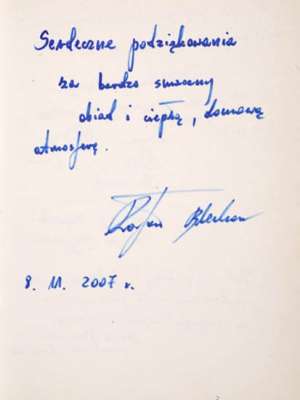 Serdeczne podziękowania
za bardzo smaczny
obiad i ciepłą, domową
atmosferę.
8. 11. 2007 r.